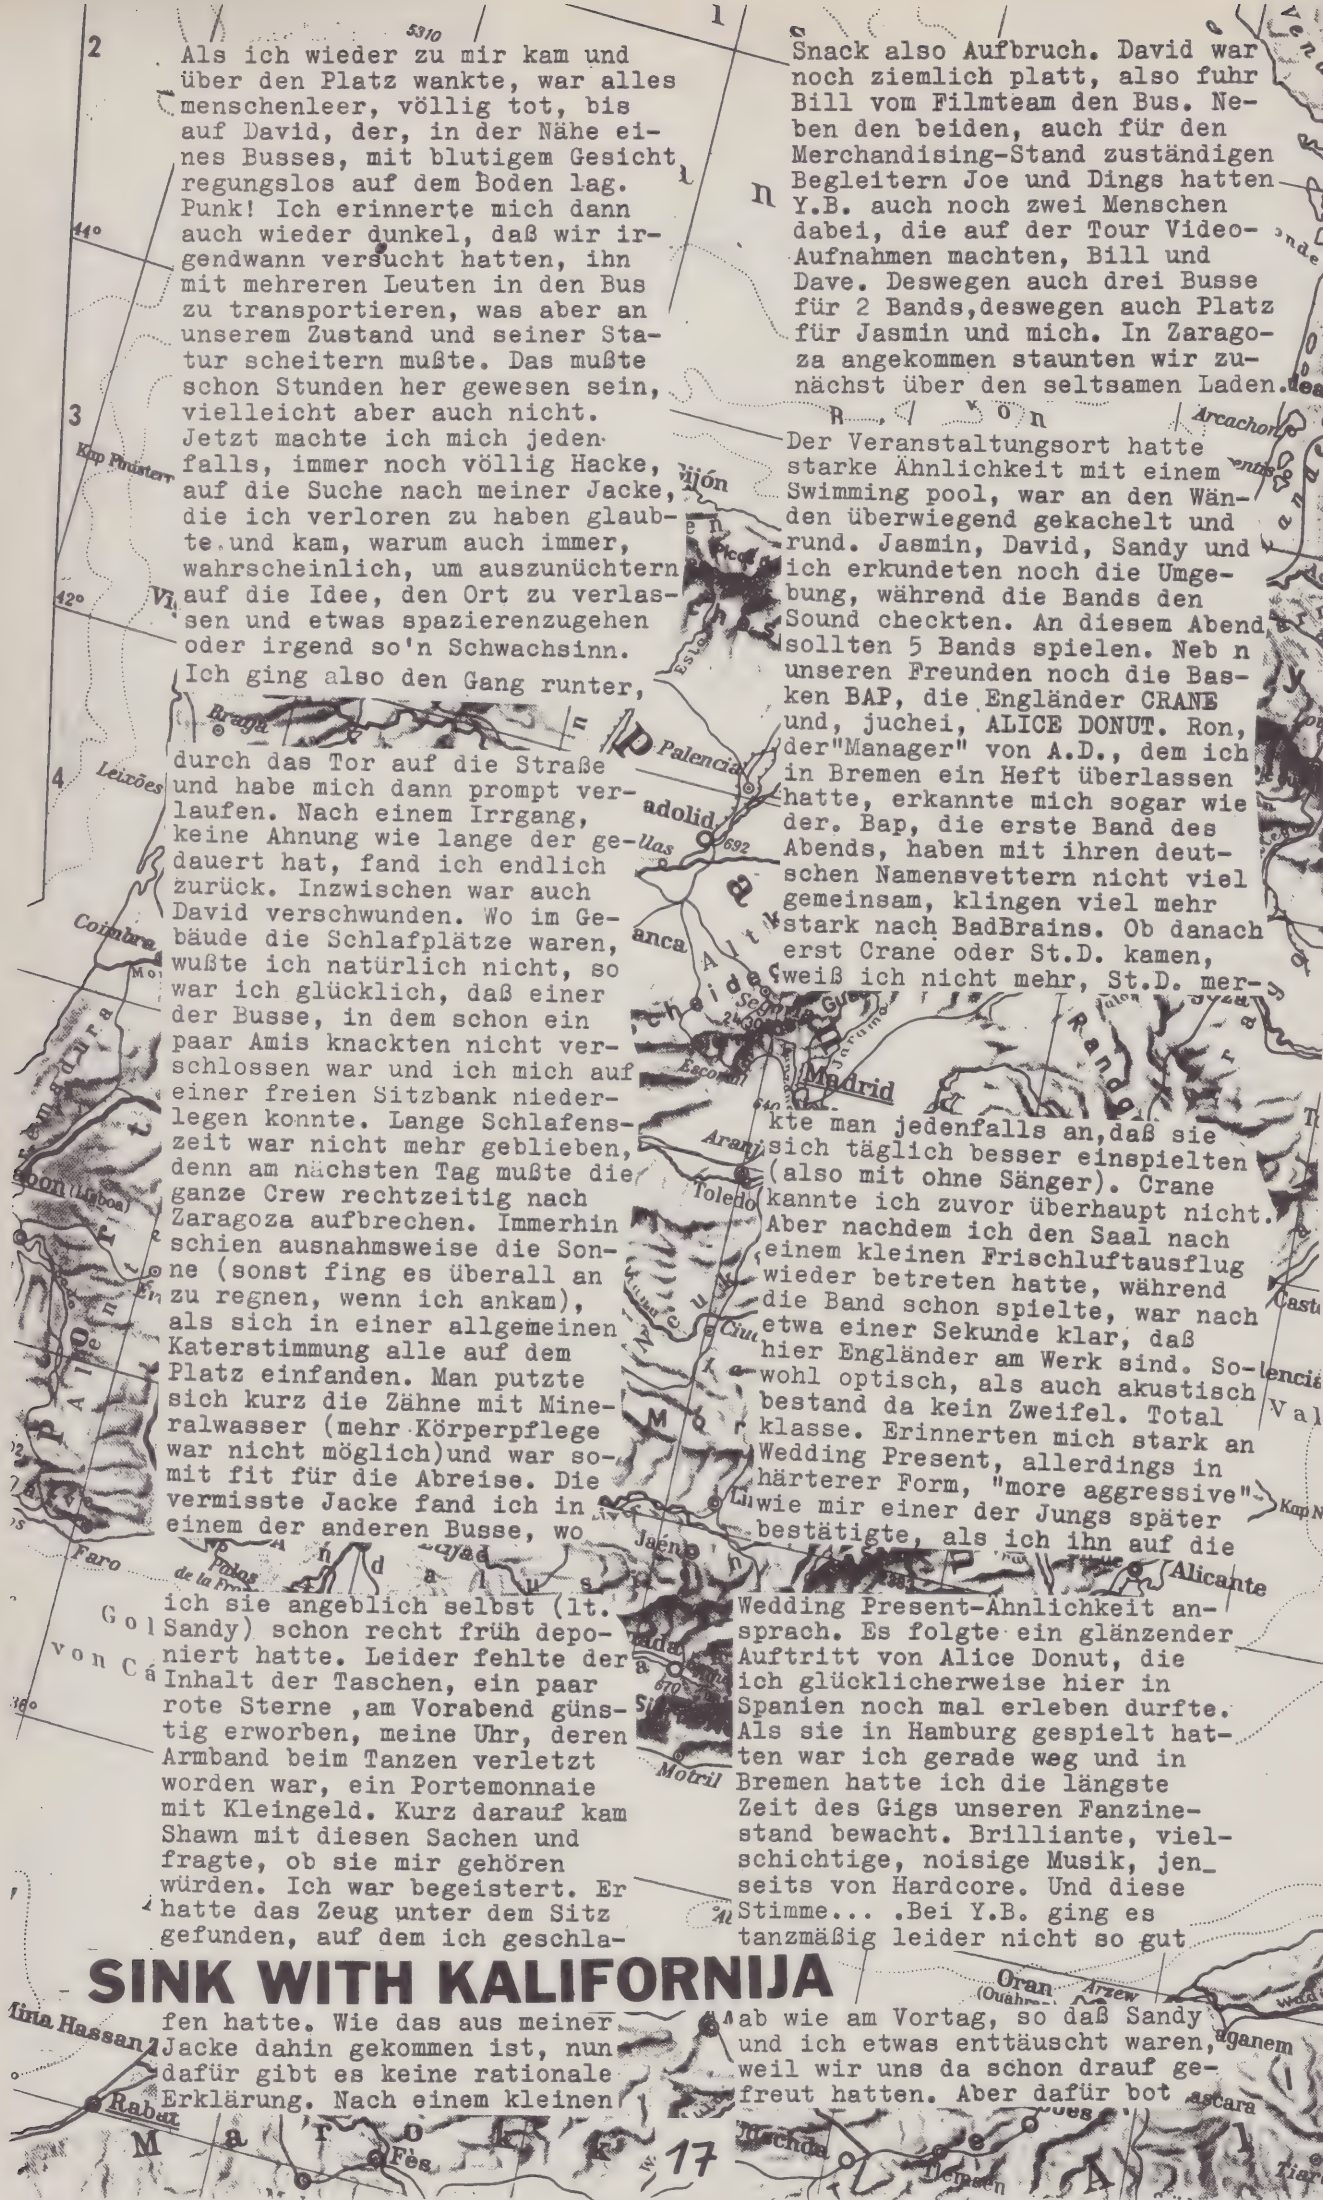 Als ich wieder zu mir kam und
über den Platz wankte, war alles
menschenleer, völlig tot, bis
auf David, der, in der Nähe ei-
nes Busses, mit blutigem Gesicht
regungslos auf dem Boden lag.
Punk! Ich erinnerte mich dann
auch wieder dunkel, daß wir ir-
gendwann versucht hatten, ihn
mit mehreren Leuten in den Bus
zu transportieren, was aber an
unserem Zustand und seiner Sta-
tur scheitern mußte. Das mußte
schon Stunden her gewesen sein,
vielleicht aber auch nicht.
Jetzt machte ich mich jeden-
falls, immer noch völlig Hacke,
auf die Suche nach meiner Jacke,
die ich verloren zu haben glaub-
te und kam, warum auch immer,
wahrscheinlich, um auszunüchtern
auf die Idee, den Ort zu verlas-
sen und etwas spazierenzugehen
oder irgend so'n Schwachsinn.
Ich ging also den Gang runter,
durch das Tor auf die Straße
und habe mich dann prompt ver-
laufen. Nach einem Irrgang,
keine Ahnung wie lange der ge-
dauert hat, fand ich endlich
zurück. Inzwischen war auch
David verschwunden. Wo im Ge-
bäude die Schlafplätze waren,
wußte ich natürlich nicht, so
war ich glücklich, daß einer
der Busse, in dem schon ein
paar Amis knackten nicht ver-
schlossen war und ich mich auf
einer freien Sitzbank nieder-
legen konnte. Lange Schlafens-
zeit war nicht mehr geblieben,
denn am nächsten Tag mußte die
ganze Crew rechtzeitig nach
Zaragoza aufbrechen. Immerhin
schien ausnahmsweise die Son-
ne (sonst fing es überall an
zu regnen, wenn ich ankam),
als sich in einer allgemeinen
Katerstimmung alle auf dem
Platz einfanden. Man putzte
sich kurz die Zähne mit Mine-
ralwasser (mehr Körperpflege
war nicht möglich)und war so-
mit fit für die Abreise. Die
vermisste Jacke fand ich in
einem der anderen Busse, wo
ich sie angeblich selbst (lt.
Sandy) schon recht früh depo-
niert hatte. Leider fehlte der
Inhalt der Taschen, ein paar
rote Sterne ,am Vorabend güns-
tig erworben, meine Uhr, deren
Armband beim Tanzen verletzt
worden war, ein Portemonnaie
mit Kleingeld. Kurz darauf kam
Shawn mit diesen Sachen und
fragte, ob sie mir gehören
würden. Ich war begeistert. Er
hatte das Zeug unter dem Sitz
gefunden, auf dem ich geschla-
SINK WITH KALIFORNIJA
fen hatte. Wie das aus meiner
Jacke dahin gekommen ist, nun
dafür gibt es keine rationale
Erklärung. Nach einem kleinen
Snack also Aufbruch. David war
noch ziemlich platt, also fuhr
Bill vom Filmteam den Bus. Ne-
ben den beiden, auch für den
Merchandising-Stand zuständigen
Begleitern Joe und Dings hatten
Y.B. auch noch zwei Menschen
dabei, die auf der Tour Video-
Aufnahmen machten, Bill und
Dave. Deswegen auch drei Busse
für 2 Bands,deswegen auch Platz
für Jasmin und mich. In Zarago-
za angekommen staunten wir zu-
nächst über den seltsamen Laden.
Der Veranstaltungsort hatte
starke Ähnlichkeit mit einem
Swimming pool, war an den Wän-
den überwiegend gekachelt und
rund. Jasmin, David, Sandy und
ich erkundeten noch die Umge-
bung, während die Bands den
Sound checkten. An diesem Abend
sollten 5 Bands spielen. Neb n
unseren Freunden noch die Bas-
ken BAP, die Engländer CRANE
und, juchei, ALICE DONUT. Ron,
der"Manager" von A.D., dem ich
in Bremen ein Heft überlassen
hatte, erkannte mich sogar wie
der. Bap, die erste Band des
Abends, haben mit ihren deut-
schen Namensvettern nicht viel
gemeinsam, klingen viel mehr
stark nach BadBrains. Ob danach
erst Crane oder St.D. kamen,
weiß ich nicht mehr, St.D. mer-
kte man jedenfalls an,daß sie
sich täglich besser einspielten
(also mit ohne Sänger). Crane
kannte ich zuvor überhaupt nicht.
Aber nachdem ich den Saal nach
einem kleinen Frischluftausflug
wieder betreten hatte, während
die Band schon spielte, war nach
etwa einer Sekunde klar, daß
hier Engländer am Werk sind. So-
wohl optisch, als auch akustisch
bestand da kein Zweifel. Total
klasse. Erinnerten mich stark an
Wedding Present, allerdings in
härterer Form, "more aggressive"
wie mir einer der Jungs später
bestätigte, als ich ihn auf die
Wedding Present-Ähnlichkeit an-
sprach. Es folgte ein glänzender
Auftritt von Alice Donut, die
ich glücklicherweise hier in
Spanien noch mal erleben durfte.
Als sie in Hamburg gespielt hat-
ten war ich gerade weg und in
Bremen hatte ich die längste
Zeit des Gigs unseren Fanzine-
stand bewacht. Brilliante, viel-
schichtige, noisige Musik, jen_
seits von Hardcore. Und diese
Stimme... .Bei Y.B. ging es
tanzmäßig leider nicht so gut
ab wie am Vortag, so daß Sandy
und ich etwas enttäuscht waren,
weil wir uns da schon drauf ge-
freut hatten. Aber dafür bot
17
5310
1
2
3
4
44°
42°
36°
Braga
Leixões
Coimbra
Faro
Palencia
692
Madrid
Toledo
Jaén
Motril
Arcachon
Alicante
Oran
Arzew
Rabat
Fès
Marokk